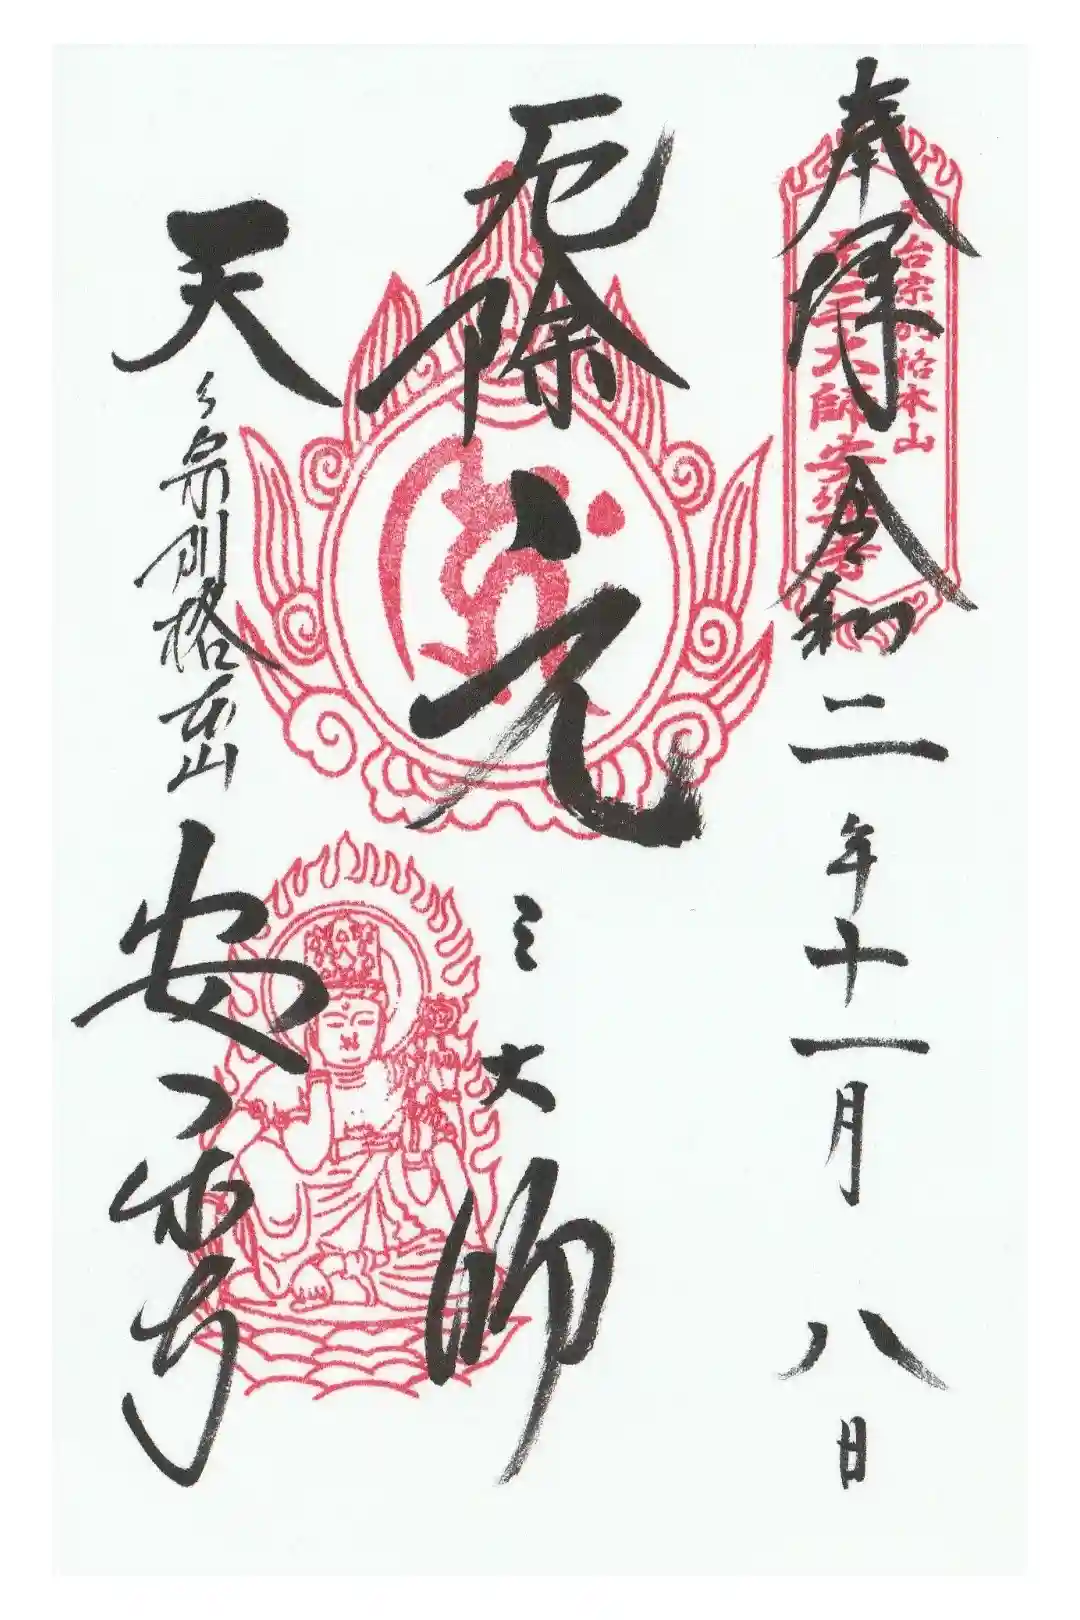 奉拝 令和二年十一月八日
天台宗別格本山
元三大師安樂寺
厄除 元三大師
天台宗別格本山 安楽寺